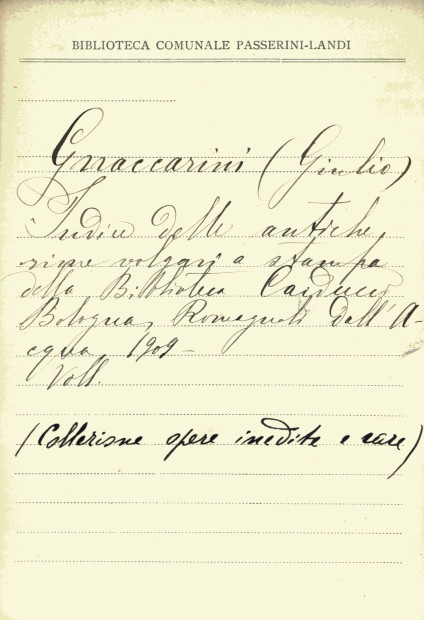 BIBLIOTECA COMUNALE PASSERINI-LANDI
Gnaccarini (Giulio)
Indice delle antiche
rime volgari a stampa
della Biblioteca Carducci
Bologna, Romagnoli Dall'A-
cqua, 1909 -
Voll.
(Collezione opere inedite e rare)